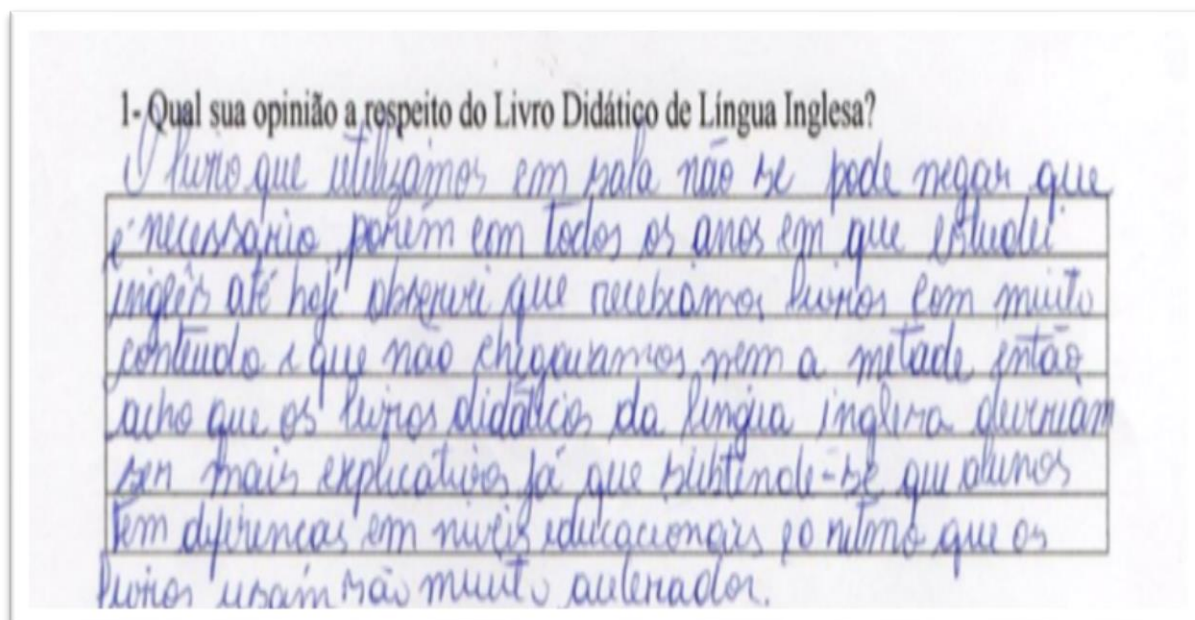 1- Qual sua opinião a respeito do Livro Didático de Língua Inglesa?
O livro que utilizamos em sala não se pode negar que
é necessário, porém em todos os anos em que estudei
inglês até hoje observei que recebiamos livros com muito
conteudo e que não chegavamos nem a metade então
acho que os livros didáticos da lingua inglesa deveriam
ser mais explicativos já que subtende-se que alunos
tem diferenças em niveis educacionais e o ritmo que os
livros usam são muito acelerados.